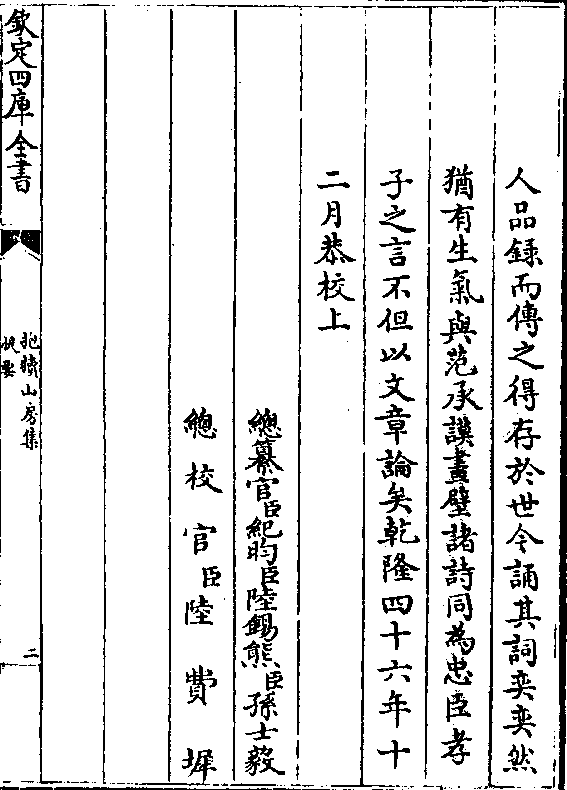 人品録而傳之得存於世今誦其詞奕奕然
猶有生氣與范承謨畫壁諸詩同為忠臣孝
子之言不但以文章論矣乾隆四十六年十
二月恭校上
總纂官臣紀昀臣陸錫熊臣孫士毅
總校官臣陸費墀
欽定四庫全書
抱犢山房集
提要
二